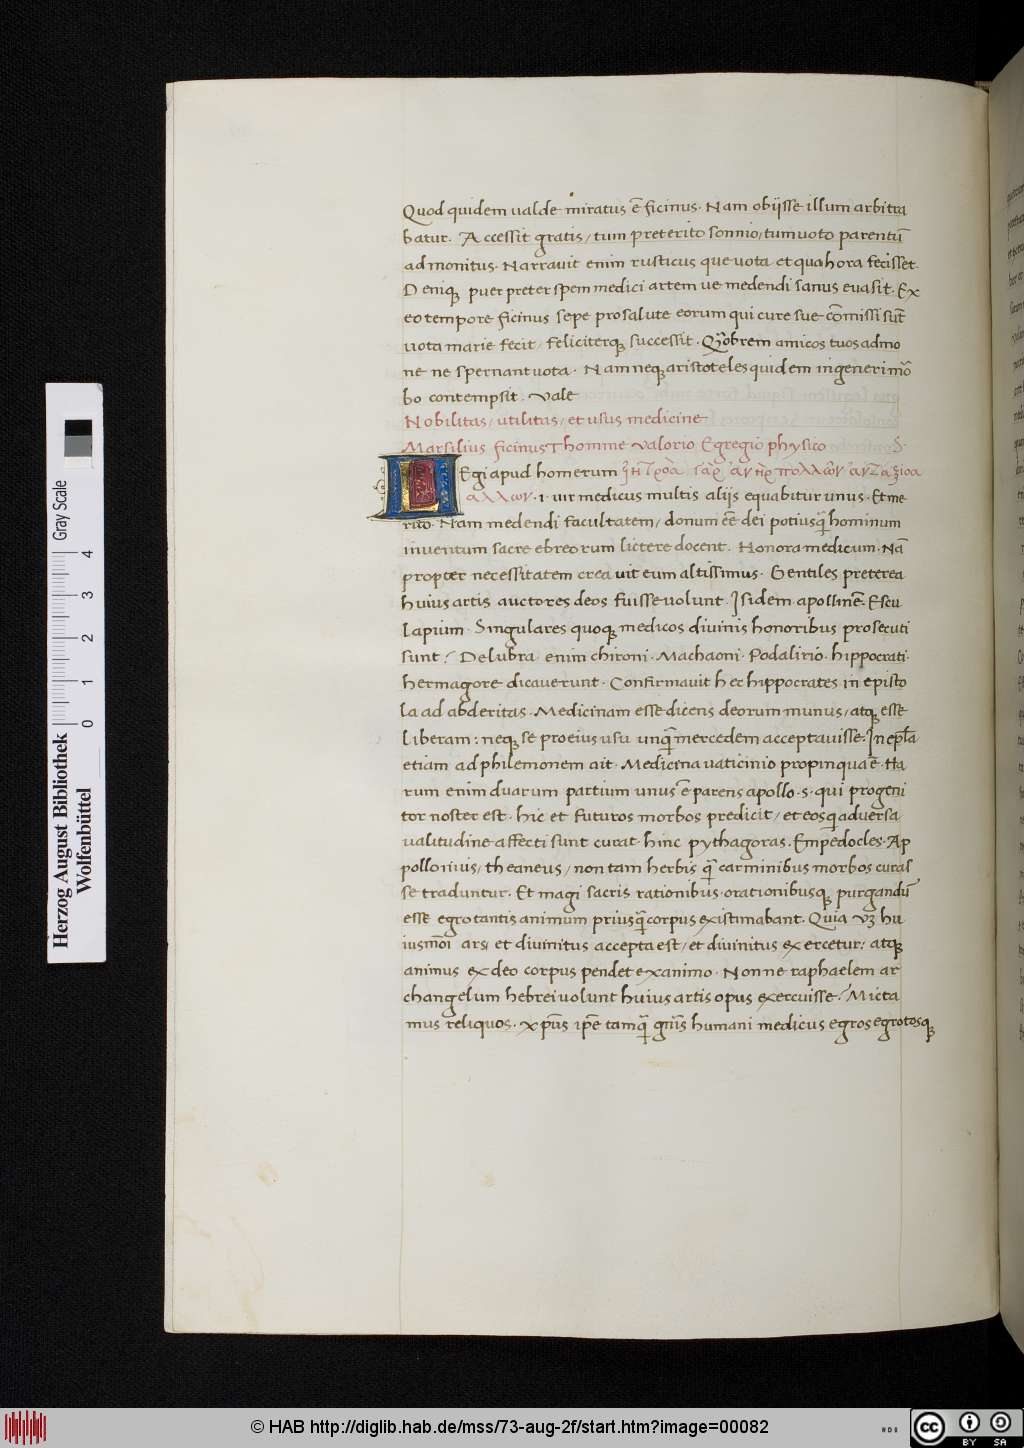 Quod quidem ualde miratus ē ficinus. Nam obijsse illum arbitra
batur. Accessit gratis/ tum preterito somnio/ tum uoto parentū
admonitus. Narrauit enim rusticus que uota et qua hora fecisset.
Deniq; puer preter spem medici artem ue medendi sanus euasit. Ex
eo tempore ficinus sepe pro salute eorum qui cure sue cōmissi sūt
uota marie fecit/ feliciterq; successit. Quobrem amicos tuos admo
ne ne spernant uota. Nam neq; aristoteles quidem in genere imō
bo contempsit. vale
Nobilitas/ utilitas/ et usus medicine
Marsilius ficinus Thomme valorio Egregio physico S.
LEgi apud homerum
αλλων. i. uir medicus multis alijs equabitur unus. Et me
rito. Nam medendi facultatem/ donum eē dei potiusq̄ hominum
inuentum sacre ebreorum lictere docent. Honora medicum. Nā
propter necessitatem creauit eum altissimus. Gentiles preterea
huius artis auctores deos fuisse uolunt. Isidem. apollinē. Escu
lapium. Singulares quoq; medicos diuinis honoribus prosecuti
sunt: Delubra enim chironi. Machaoni. Podalirio. hippocrati.
hermagore dicauerunt. Confirmauit hec hippocrates in episto
la ad abderitas. Medicinam esse dicens deorum munus/ atq; esse
liberam: neq; se pro eius usu unq̄ mercedem acceptauisse. In epl̄a
etiam ad philemonem ait. Medicina uaticinio propinqua ē. Ha
rum enim duarum partium unus ē parens apollo. s. qui progeni
tor noster est. hic et futuros morbos predicit/ et eos qui aduersa
ualitudine affecti sunt curat. hinc pythagoras. Empedocles. Ap
pollonius/ theaneus/ non tam herbis q̄ carminibus morbos curas
se traduntur. Et magi sacris rationibus orationibusq; purgandū
esse egrotantis animum priusq̄ corpus existimabant. Quia vz hu
iusmōi ars/ et diuinitus accepta est/ et diuinitus exercetur: atq;
animus ex deo corpus pendet ex animo. Nonne raphaelem ar
changelum hebrei uolunt huius artis opus exercuisse? Micta
mus reliquos. xp̄us ip̄e tamq̄ gn̄is humani medicus egros egrotosq;
Herzog August Bibliothek
Wolfenbüttel
Gray Scale
0 1 2 3 4
© HAB http://diglib.hab.de/mss/73-aug-2f/start.htm?image=00082
cc BY SA